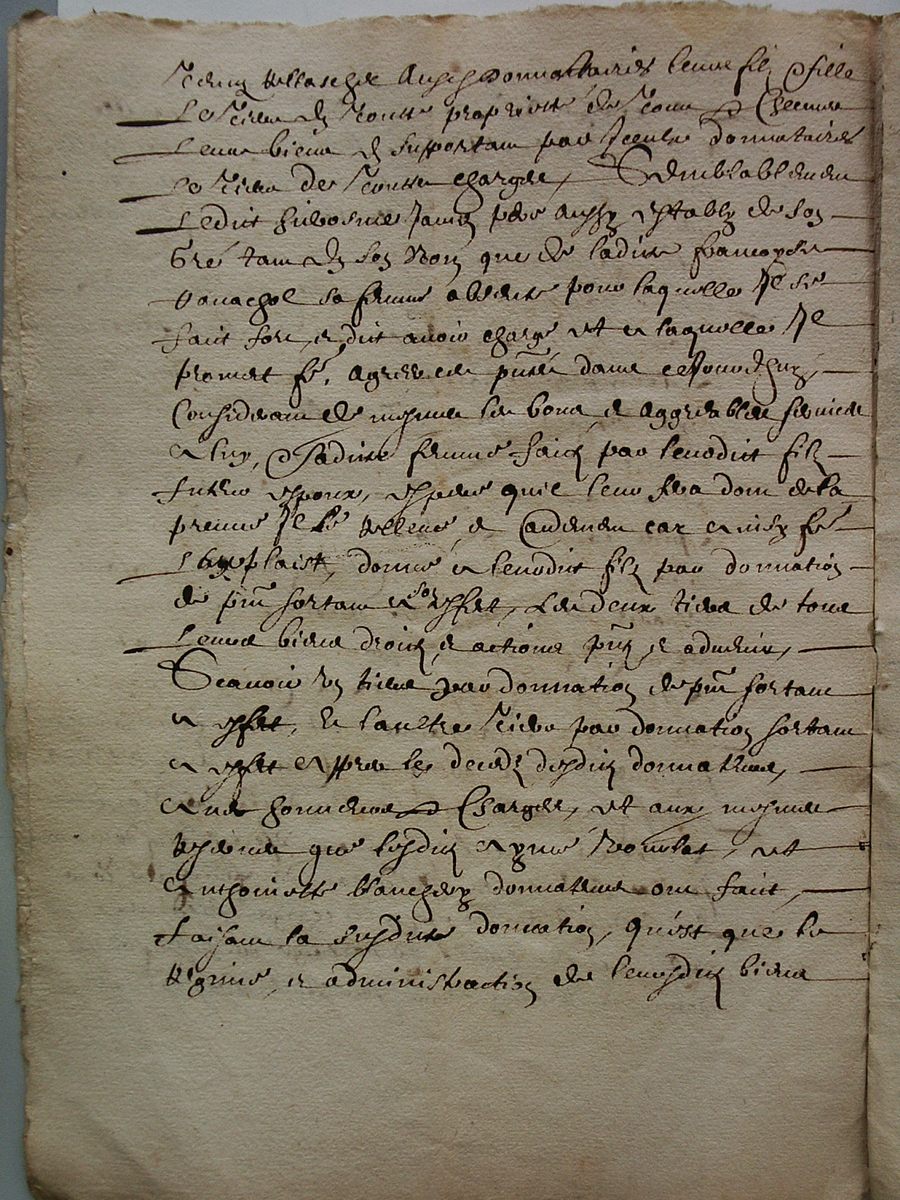 donnataires leurs filz & fille
Le tiers en toutte proprietté de tous & chescuns
Leurs biens en supportant par iceulx donnataires
Le tiers de touttes charges, Semblablement
Ledit Jamy pere aussy estably de son
Gré tant en son Nom que de ladite francoyse
sa femme absente pour laquelle Il se
faict fort, et dit avoir charge et a laquelle Il
promet fe. agreer ces pntes dans
Considerant de mesmes les bons, et aggreables services
a luy, & sadite femme faictz par leurdit filz
futeur espoux, espere quil leur fera dont de la
preuve Il le relleve, et car ainsy fe
Luy plaist, donne a leurdit filz par donnation
de pnt sortant a son effect, Les deux tiers de tous
Leurs biens droictz, et actions pntz, et advenir,
Scavoir un tiers par donnation de pnt sortant
a effect, et laultre tiers par donnation sortant
a effect appres le decedz desditz donnateurs,
charges, et aux mesmes
reserves que lesditz et
Anthoinette donnateurs ont faict,
faisant la susdite donnation, quest que le
regime, et administraction de leursditz biens